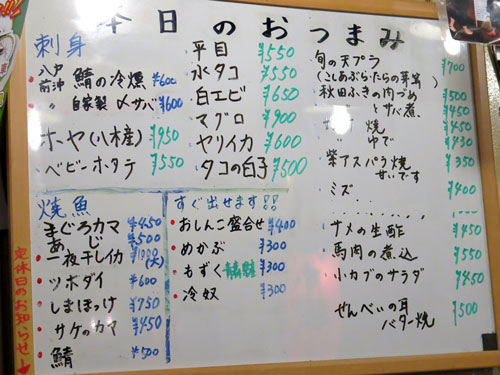 本日のおつまみ
刺身
八戸前沖 鯖の冷燻 ¥600
〃 自家製〆サバ ¥600
ホヤ(八木産) ¥950
ベビーホタテ ¥550
平目 ¥550
水タコ ¥550
白エビ ¥650
マグロ ¥900
ヤリイカ ¥600
タコの白子 ¥500
旬の天プラ ¥700
(こしあぶら・たらの芽
秋田ふきの肉づめ ¥500
とサバ煮 ¥450
焼 ¥450
ゆで ¥430
紫アスパラ焼 ¥350
甘いです
ミズ ¥400
サメの生酢 ¥450
馬肉の煮込 ¥550
小カブのサラダ ¥450
せんべいの耳
バター焼 ¥500
焼魚
まぐろカマ ¥450
あじ ¥500
一夜干しイカ ¥1000
(大)
ツボダイ ¥600
しまほっけ ¥750
サケのカマ ¥450
鯖 ¥500
すぐ出せます!!
おしんこ盛合せ ¥400
めかぶ ¥300
もずく ¥300
冷奴 ¥300
定休日のお知らせ→